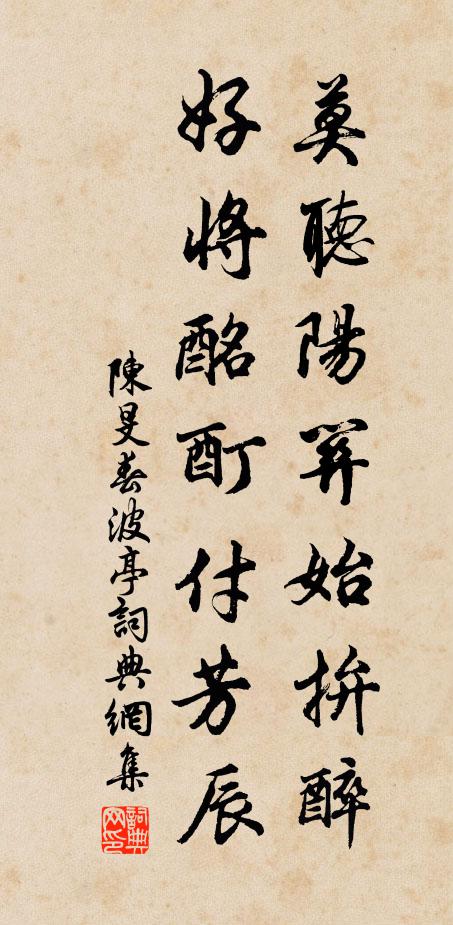 莫聽陽關始拚醉
好將酩酊付芳辰
陳旻春波亭詞典網集
詞典网印